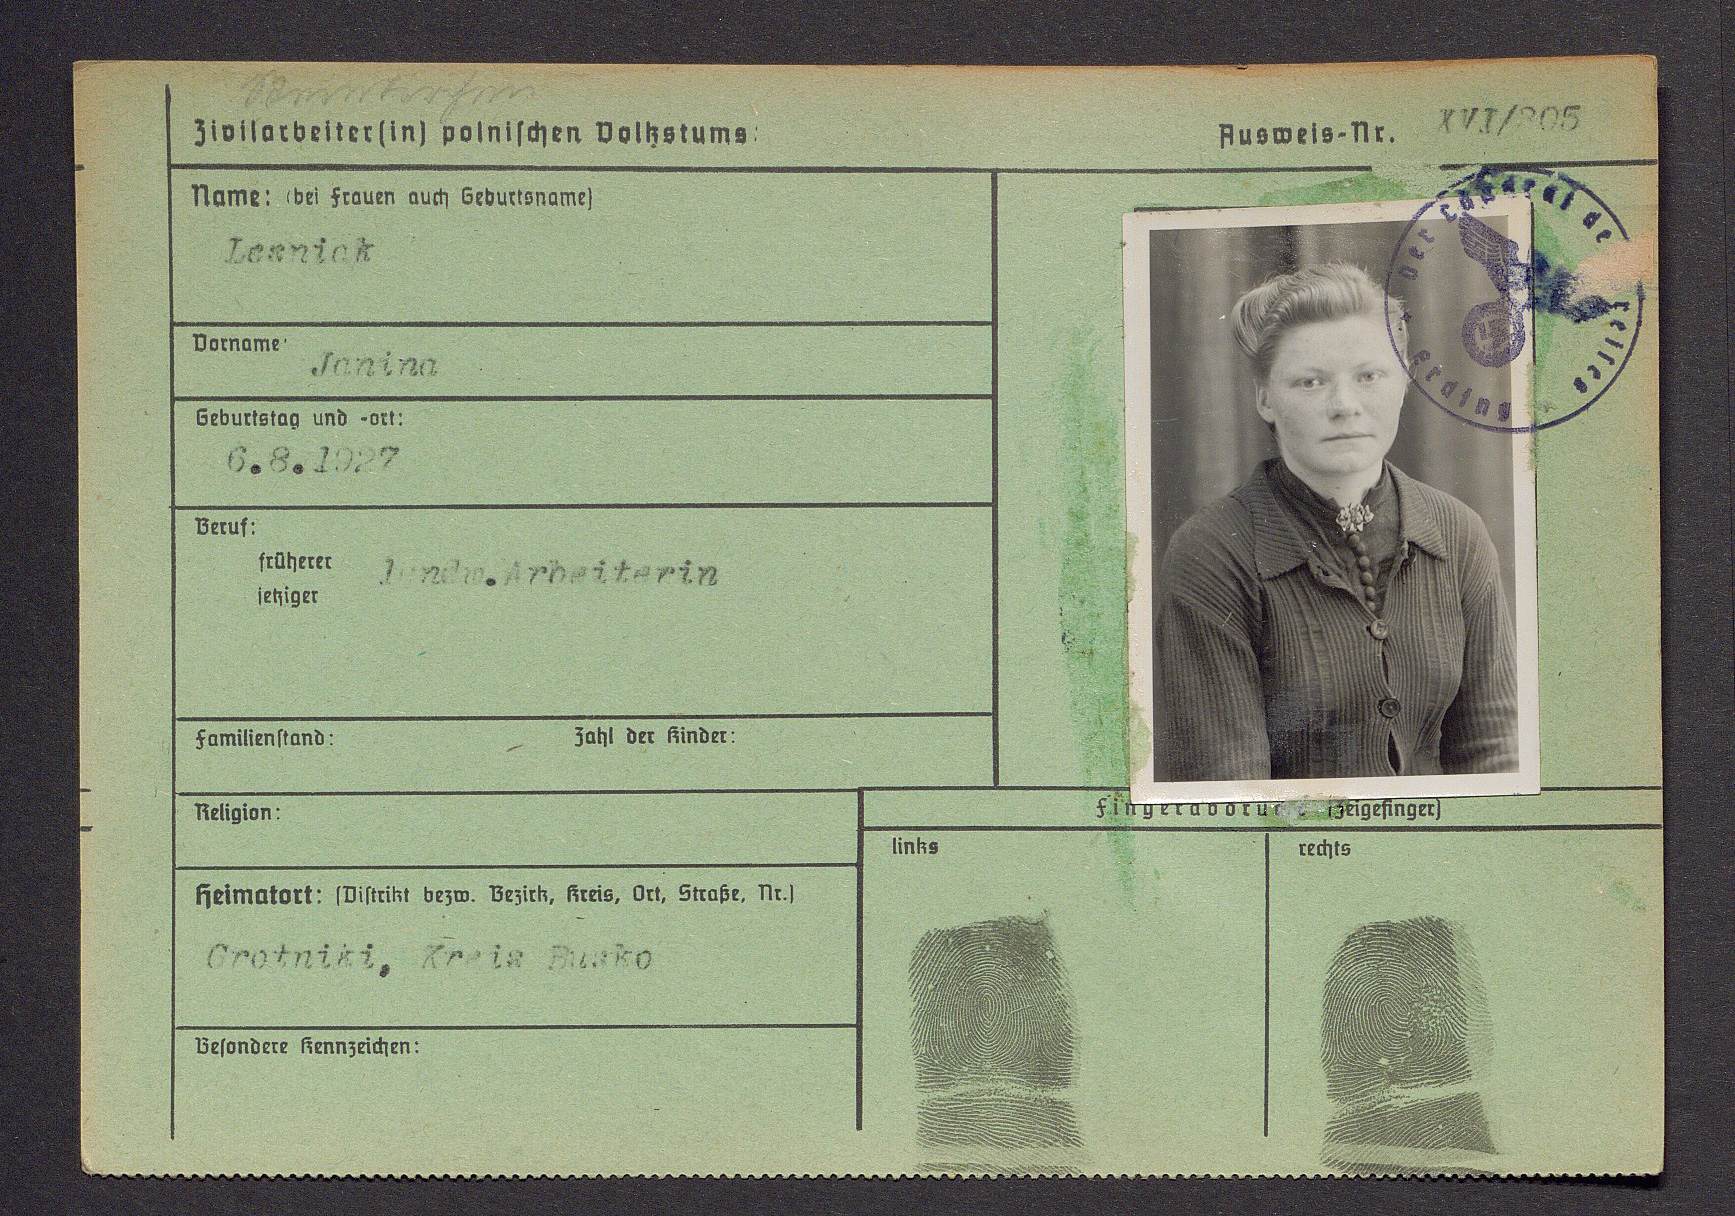 Zivilarbeiter(in) polnischen Volkstums:
Ausweis-Nr. XVI/205
Name: (bei Frauen auch Geburtsname)
Lesniak
Vorname:
Janina
Geburtstag und -ort:
6.8.1927
Beruf:
früherer
jetziger
landw.Arbeiterin
Familienstand:
Zahl der Kinder:
Religion:
Heimatort: (Distrikt bezw. Bezirk, Kreis, Ort, Straße, Nr.)
Grotniki, Kreis Busko
Besondere Kennzeichen:
Fingerabdruck (Zeigefinger)
links
rechts
Der Landrat des Kreises
Erding